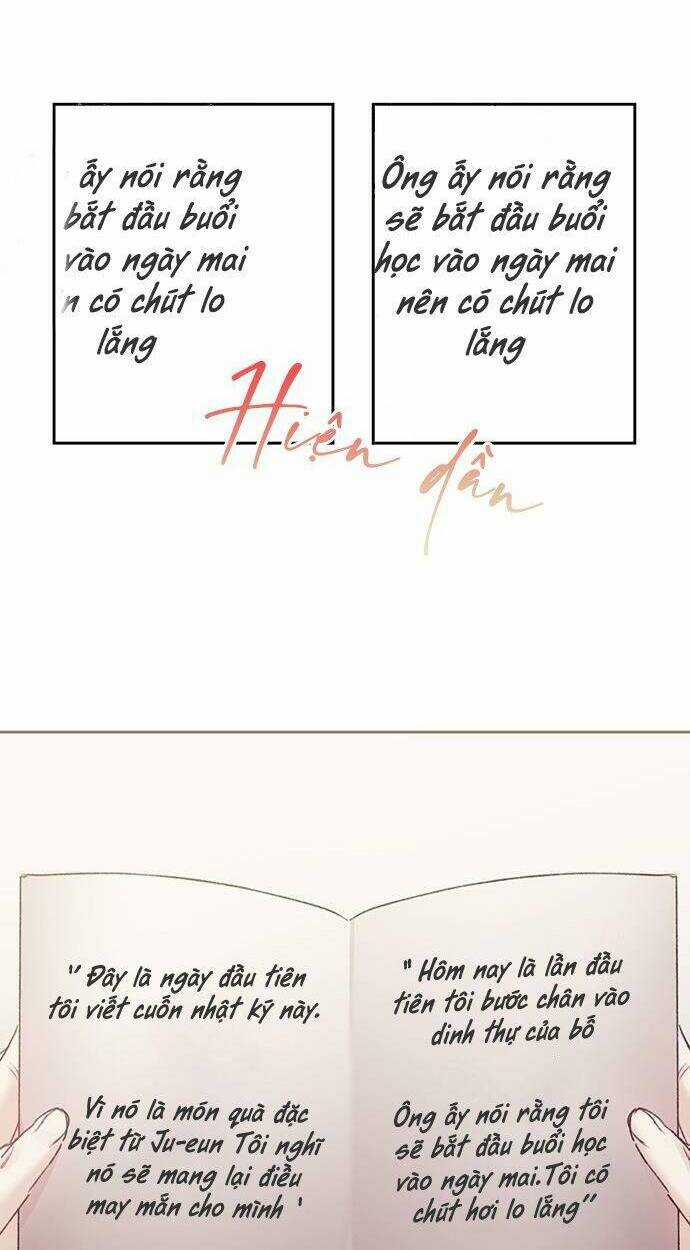 ấy nói rằng
bắt đầu buổi
vào ngày mai
n có chút lo
lắng
Ông ấy nói rằng
sẽ bắt đầu buổi
học vào ngày mai
nên có chút lo
lắng
Hiện dần
'' Đây là ngày đầu tiên
tôi viết cuốn nhật ký này.
Vì nó là món quà đặc
biệt từ Ju-eun Tôi nghĩ
nó sẽ mang lại điều
may mắn cho mình '
" Hôm nay là lần đầu
tiên tôi bước chân vào
dinh thự của bố
Ông ấy nói rằng tôi
sẽ bắt đầu buổi học
vào ngày mai.Tôi có
chút hơi lo lắng''